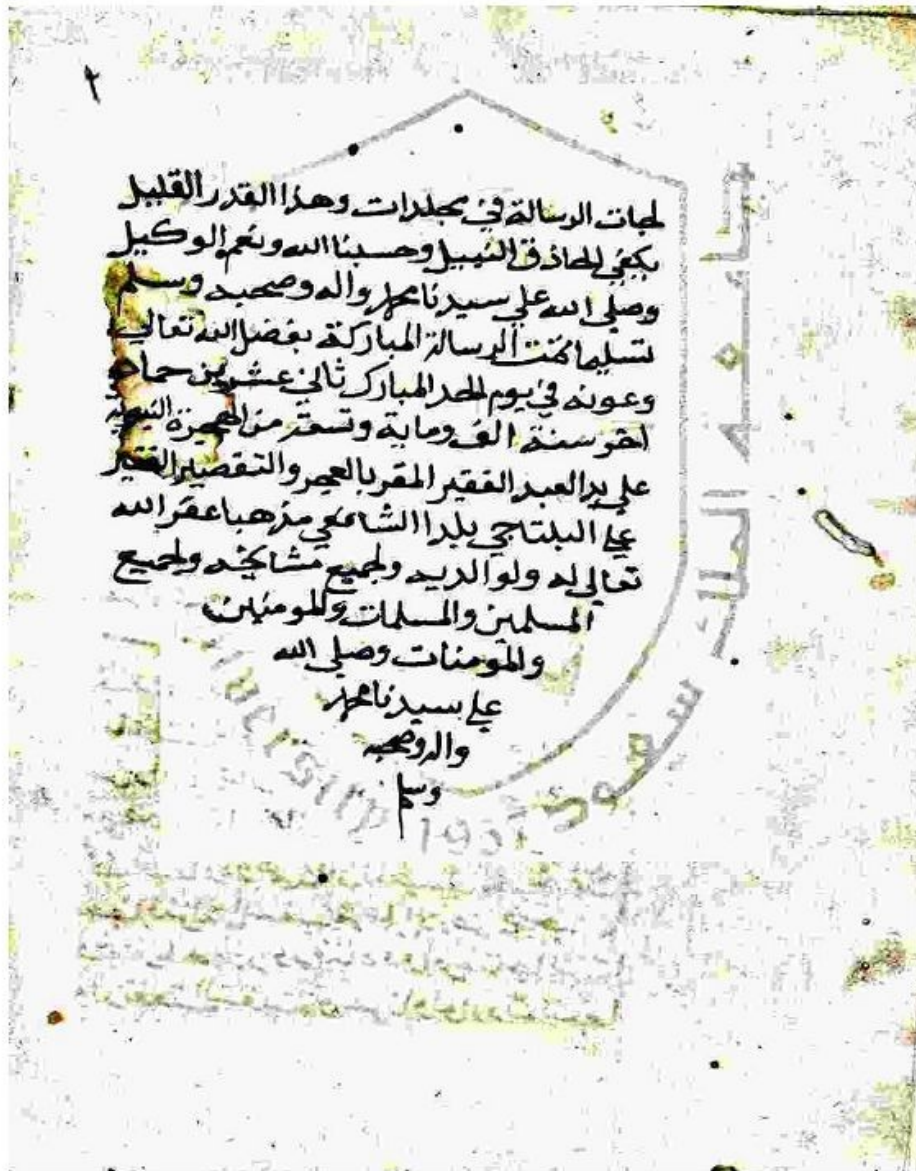 ٢
لجات الرسالة في مجلدات وهذا القدر القليل
يكفي الحاذق النبيل وحسبنا الله ونعم الوكيل
وصلى الله علي سيدنا محمد واله وصحبه وسلم
تسليما تمت الرسالة المباركة بفضل الله تعالي
وعونه في يوم الحد المبارك ثاني عشرين جماد
اخر سنة الف وماية وتسعة من الهجرة النبوية
علي يد العبد الفقير المقر بالعجز والتقصير الفقير
علي البلتاجي بلدا الشافعي مذهبا غفر الله
تعالي له ولوالديه ولجميع مشايخه ولجميع
المسلمين والمسلمات والمومنين
والمومنات وصلي الله
علي سيدنا محمد
واله وصحبه
وسلم
جامعة الملك سعود
1957 University